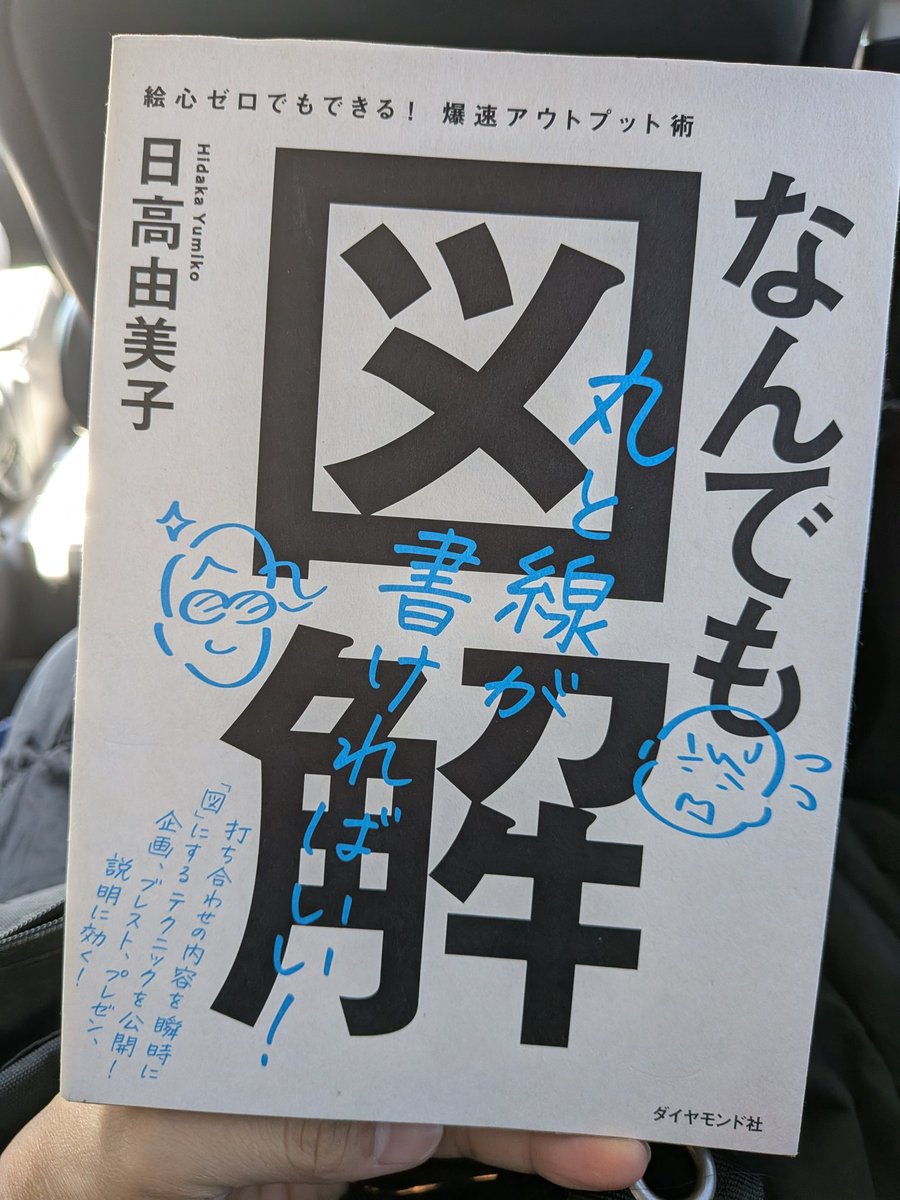 絵心ゼロでもできる! 爆速アウトプット術
なんでも
図解
日高由美子
Hidaka Yumiko
丸と線が
書ければいい!
打ち合わせの内容を瞬時に
「図」にするテクニックを公開!
企画、ブレスト、プレゼン、
説明に効く!
ダイヤモンド社